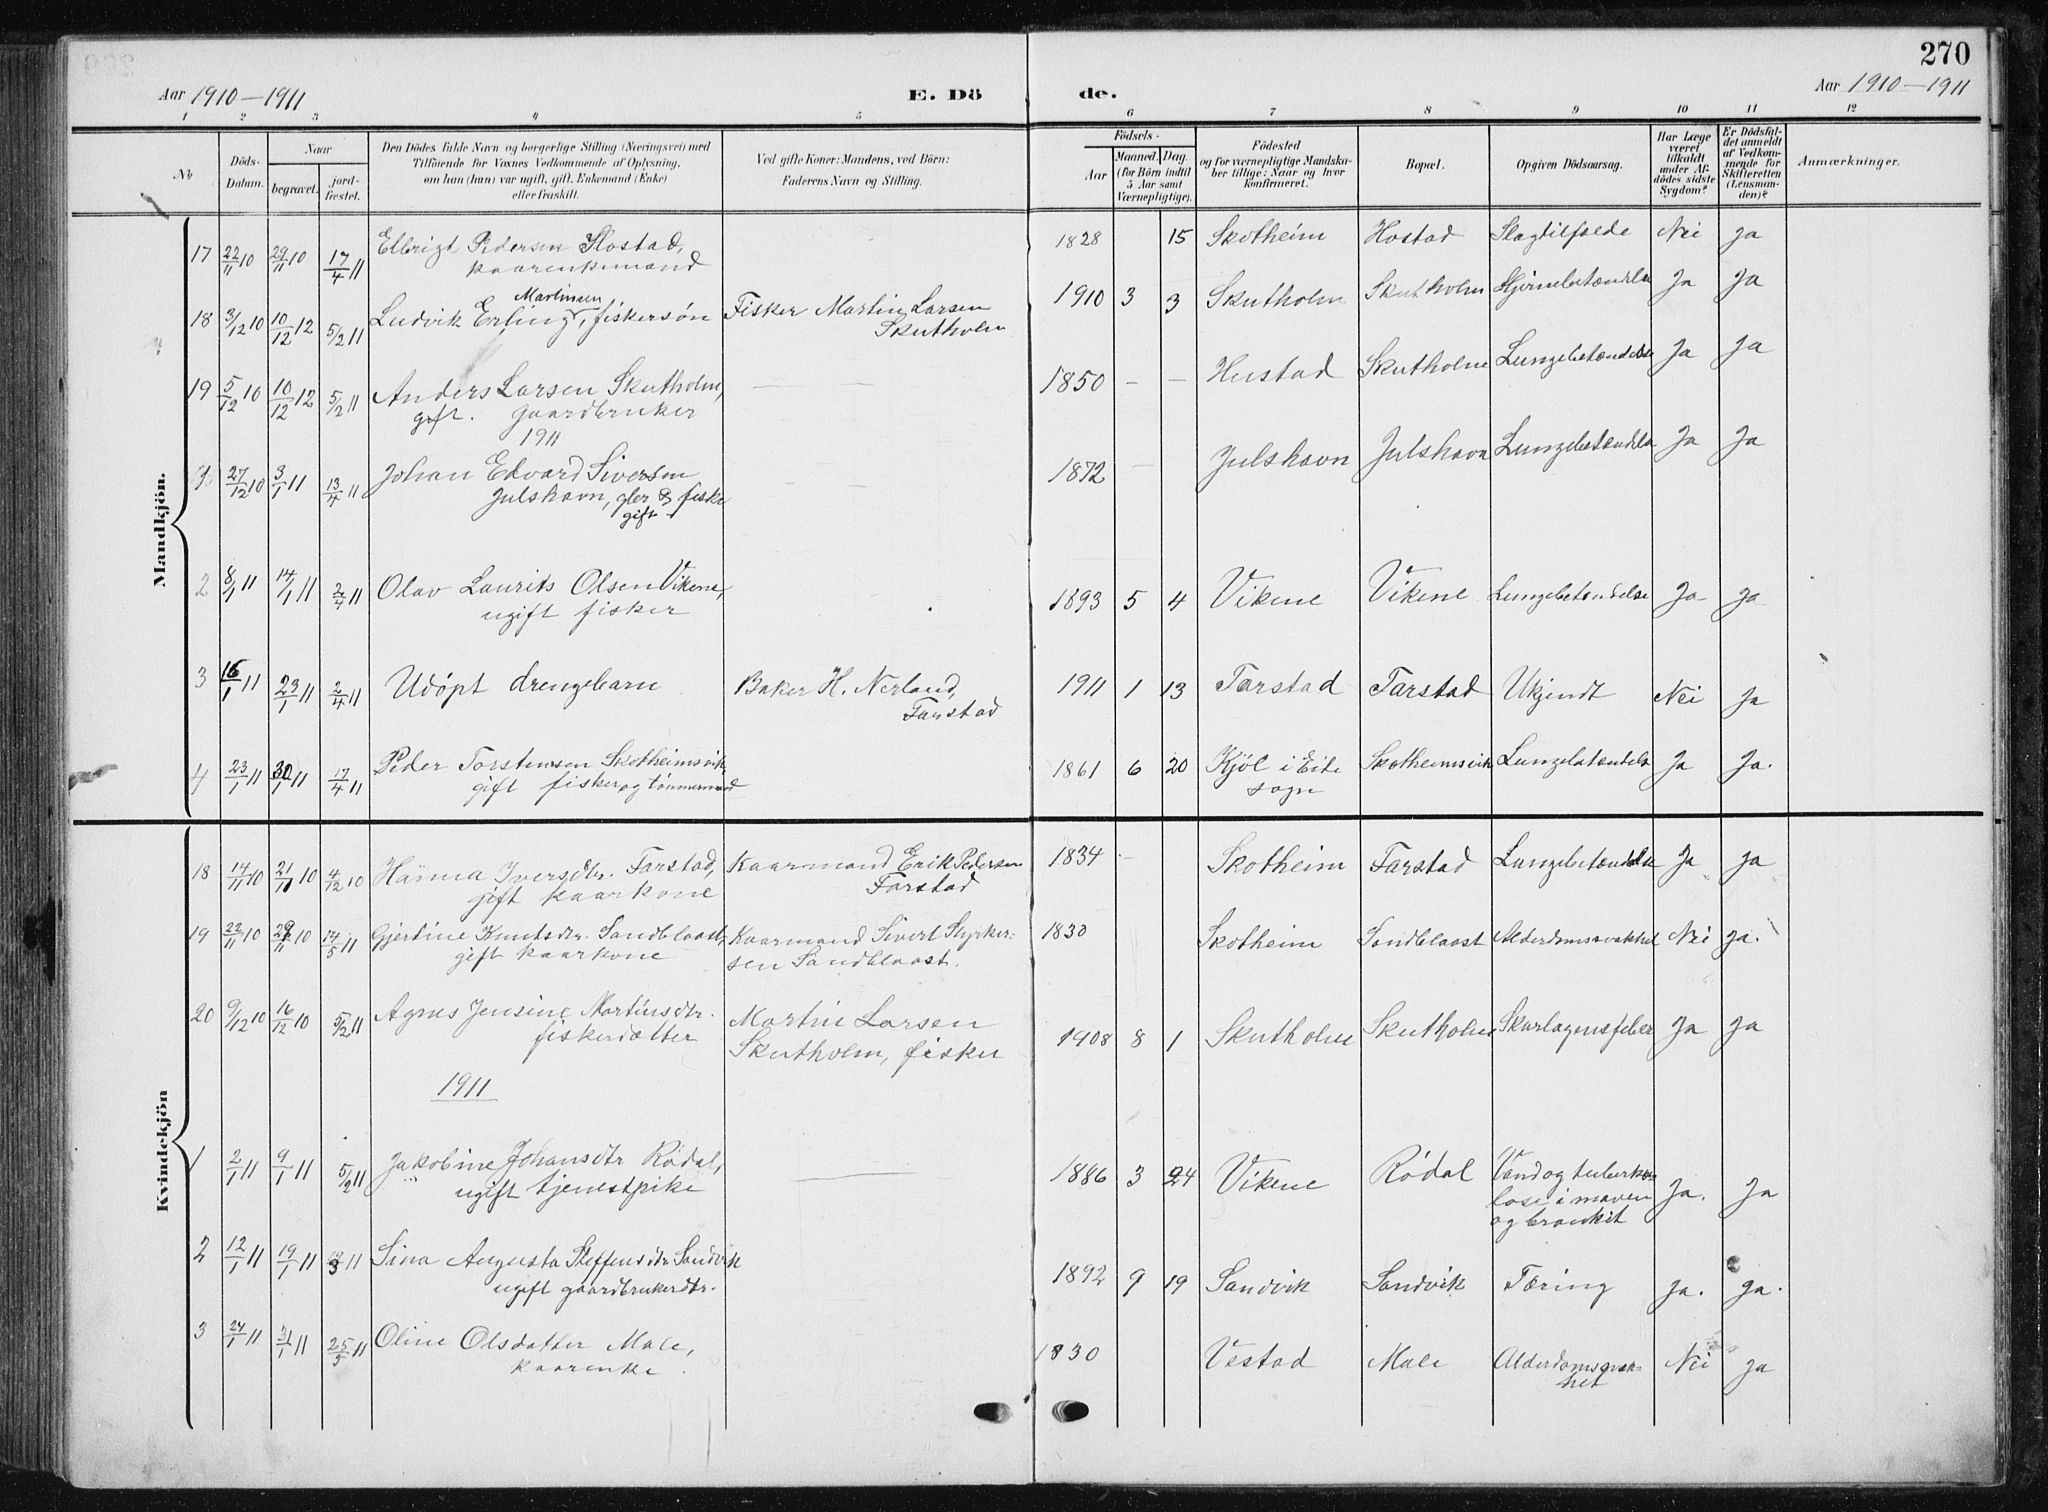 270
Aar 1910–1911 E. Dö de. Aar 1910–1911
1 2 3 4 5 6 7 8 9 10 11 12
No
Döds-Datum.
Naar
begravet.
jord-fæstet.
Den Dödes fulde Navn og borgerlige Stilling (Næringsvei) med
Tilföiende for Voxnes Vedkommende af Oplysning,
om han (hun) var ugift, gift, Enkemand (Enke)
eller fraskilt.
Ved gifte Koner: Mandens, ved Börn:
Faderens Navn og Stilling.
Födsels-
Aar
Maaned. Dag.
(for Börn indtil
5 Aar samt
Værnepligtige).
Födested
og for værnepligtige Mandska-
ber tillige: Naar og hvor
konfirmeret.
Bopæl.
Opgiven Dödsaarsag.
Har Læge
været
tilkaldt
under Af-
dödes sidste
Sygdom?
Er Dödsfal-
det anmeldt
af Vedkom-
mende for
Skifteretten
(Lensman-
den)?
Anmærkninger.
Mandkjön.
17 22/11 10 29/11 10 17/4 11 Elbrigt Pedersen Hostad, 1828 15 Skotheim Hostad Slagtilfælde Nei Ja
kaarenkemand
18 3/12 10 10/12 12 5/2 11 Ludvik Erling Martinsen, fiskersøn Fisker Martin Larsen 1910 3 3 Skutholm Skutholm Hjernebetændelse Ja Ja
Skutholm
19 5/12 10 10/12 12 5/2 11 Anders Larsen Skutholm, — — 1850 — — Hustad Skutholm Lungebetændelse Ja Ja
gift. gaardbruker
1911
27/12 10 3/1 11 13/4 11 Johan Edvard Siversen 1872 — Julshavn Julshavn Lungebetændelse Ja Ja
Julshavn, & fisker
gift
2 8/1 11 14/1 11 2/4 11 Olav Laurits Olsen Vikene, 1893 5 4 Vikene Vikene Lungebetændelse Ja Ja
ugift fisker
3 16/1 11 23/1 11 2/4 11 Udøpt drengebarn Baker H. Nerland, 1911 1 13 Farstad Farstad Ukjendt Nei Ja
Farstad
4 23/1 11 30/1 11 17/4 11 Peder Torstensen Skotheimsvik, 1861 6 20 Kjöl i Eide Skotheimsvik Lungebetændelse Ja Ja.
gift fisker og tømmermand sogn
Kvindekjön
18 14/11 10 21/11 10 4/12 10 Hanna Iversdtr. Farstad, Kaarmand Erik Pedersen 1834 — Skotheim Farstad Lungebetændelse Ja Ja
gift kaarkone Farstad
19 22/11 10 28/11 10 14/5 11 Gjertine Knutsdtr. Sandblaast, Kaarmand Sivert Styrker- 1830 Skotheim Sandblaast Alderdomssvakhet Nei Ja.
gift kaarkone sen Sandblaast.
20 9/12 10 16/12 10 5/2 11 Agnes Jensine Martinsdtr. Martin Larsen 1908 8 1 Skutholm Skutholm Skarlagensfeber Ja Ja
fiskerdatter Skutholm, fisker
1911
1 2/1 11 9/1 11 5/2 11 Jakobine Johansdtr Rødal, — 1886 3 24 Vikene Rødal Vand og tuberku- Ja. Ja
ugift tjenestpike lose i maven
og brøstet
2 12/1 11 19/1 11 11 Sina Augusta Steffensdtr Sandvik 1892 9 19 Sandvik Sandvik Tæring Ja. Ja.
ugift gaardbrukerdtr.
3 24/1 11 31/1 11 25/5 11 Oline Olsdatter Male, 1830 Vestad Male Alderdomssvak- Nei Ja
kaarenke het